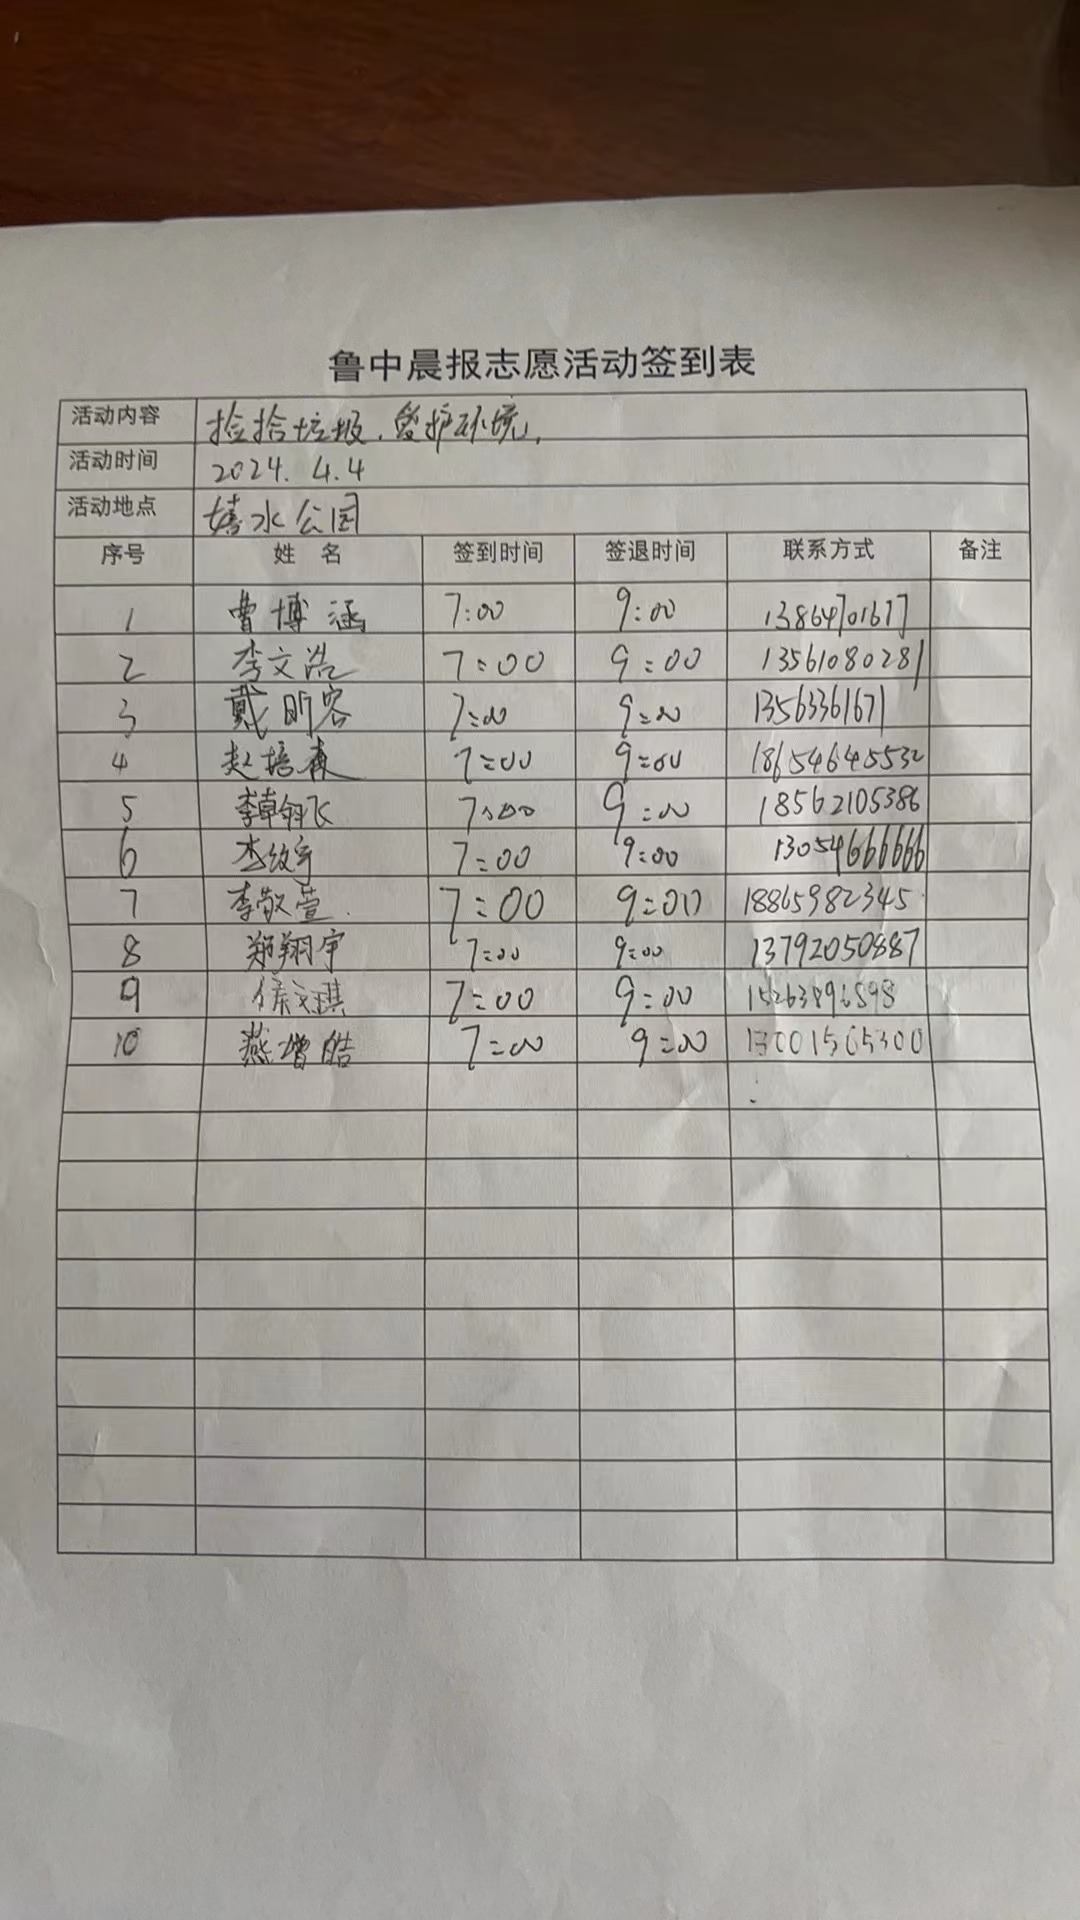 鲁中晨报志愿活动签到表
活动内容 捡拾垃圾,爱护环境,
活动时间 2024.4.4
活动地点 嬉水公园
序号 姓名 签到时间 签退时间 联系方式 备注
1 曹博涵 7:00 9:00 13864701677
2 李文浩 7:00 9:00 13561080281
3 戴昕容 7:00 9:00 13563361671
4 赵培森 7:00 9:00 18654645532
5 李卓翎飞 7:00 9:00 18562105386
6 7:00 9:00 13054666666
7 李敬萱. 7:00 9:00 18865982345
8 郑翔宇 7:00 9:00 13792050887
9 侯文琪 7:00 9:00 15263896598
10 燕增皓 7:00 9:00 13001565300